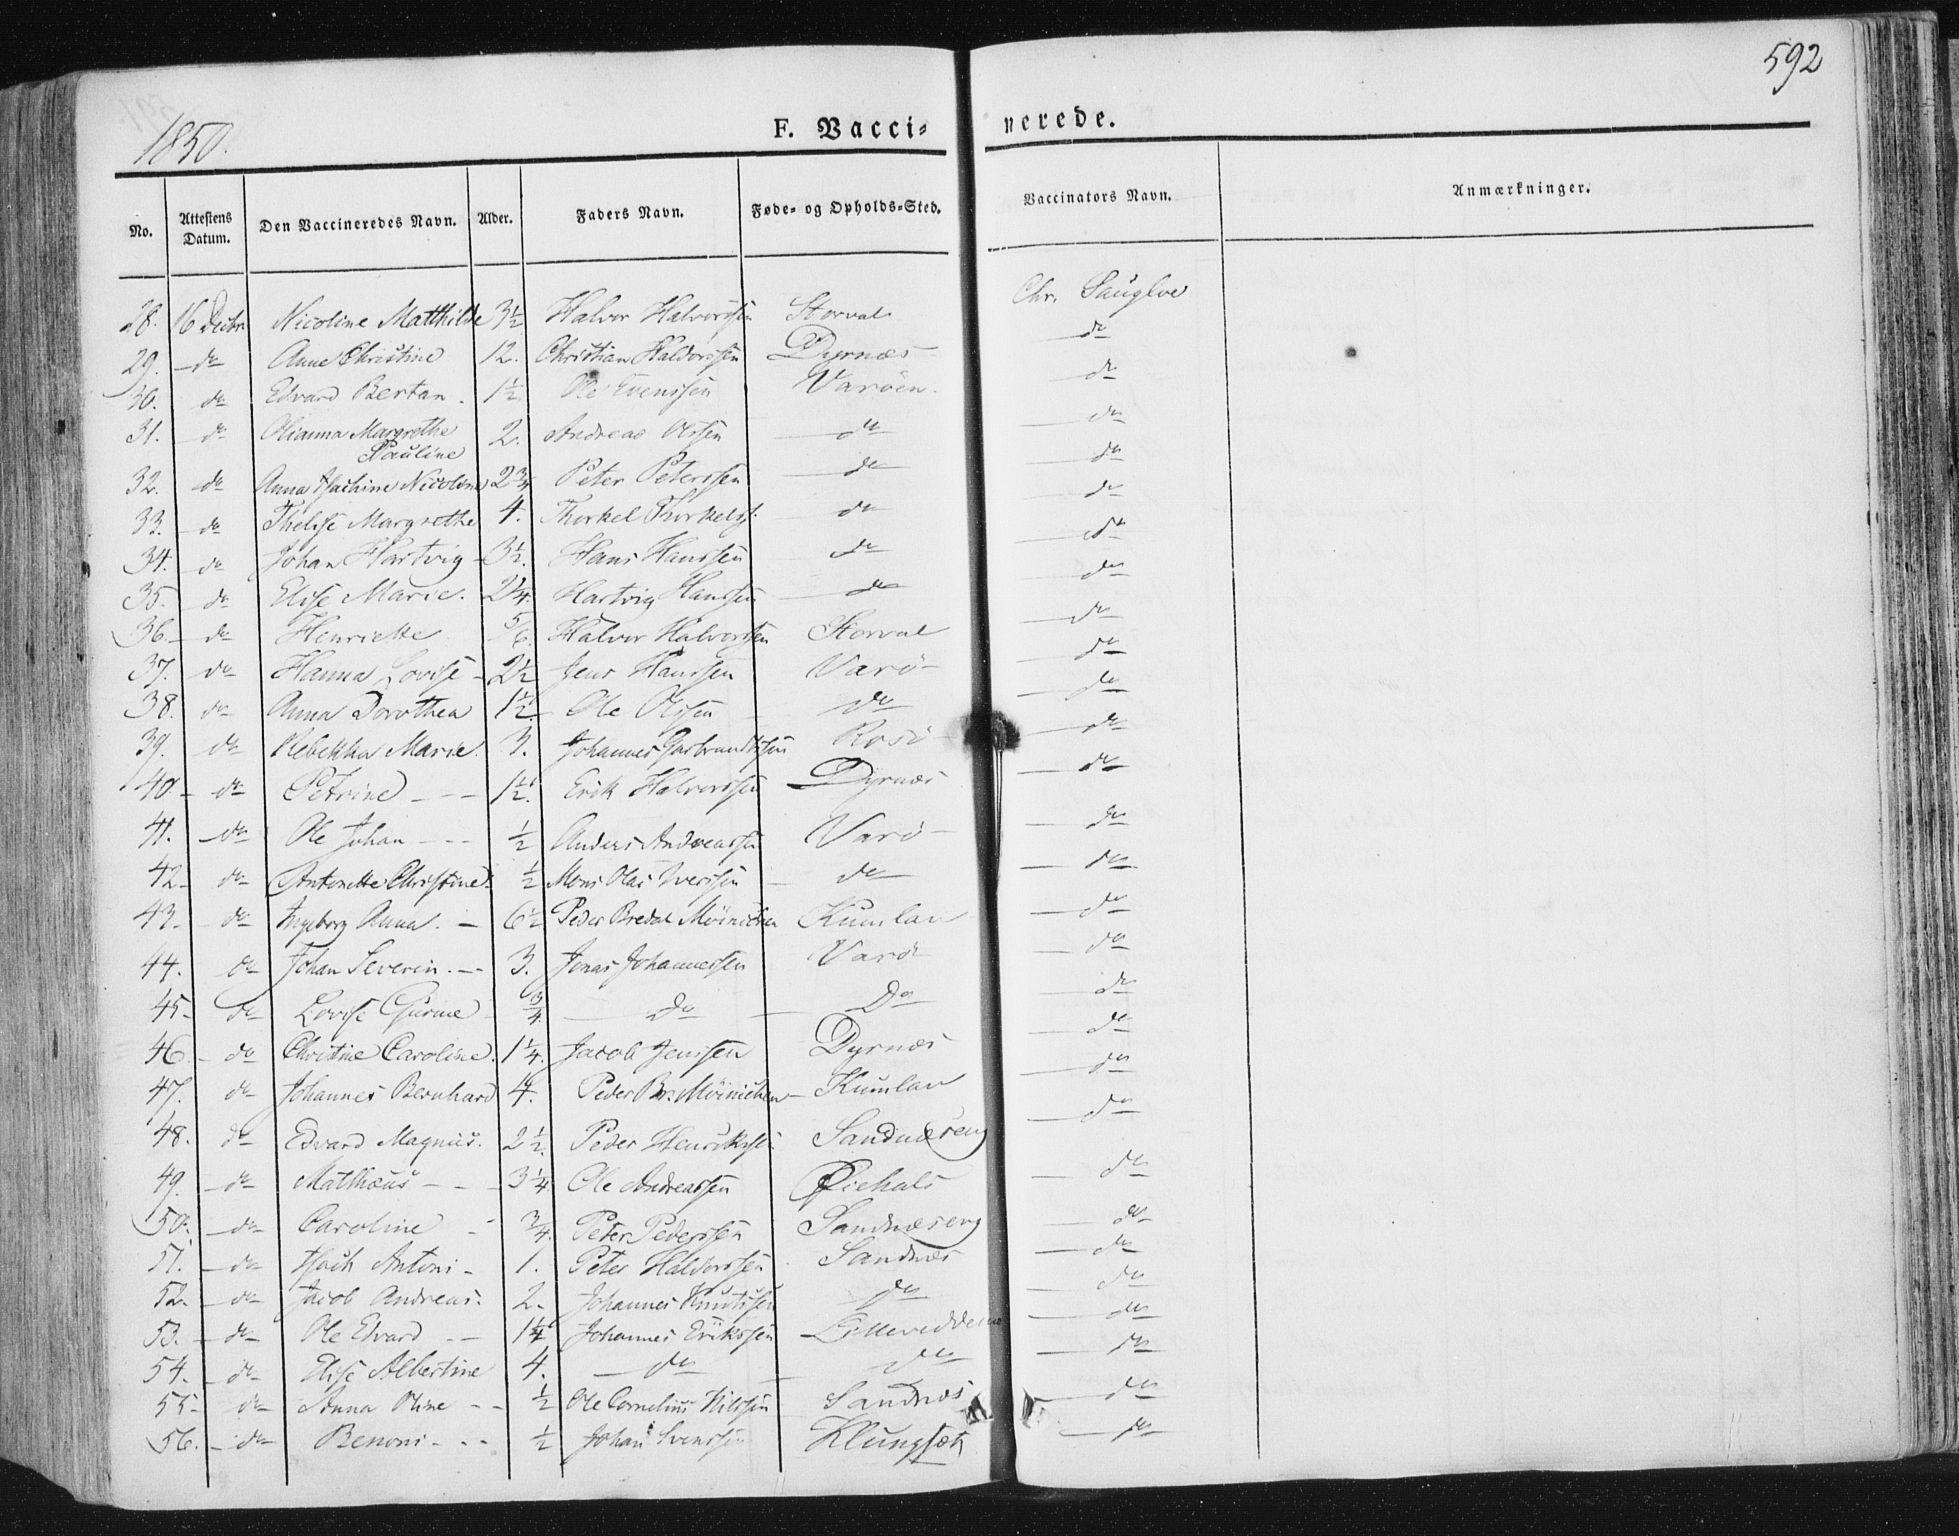 592
1850.
F. Vaccinerede.
No. Attestens Datum. Den Vaccineredes Navn. Alder. Faders Navn. Føde- og Opholds-Sted. Vaccinators Navn. Anmærkninger.
28. 16 Decbr Nicoline Matthilde 3½ Halvor Halvorssen Storval Chr. Saugloe
29. do Anne Christine 12. Christian Haldorssen Dyrnæs do
30. do Edvard Bertan. 1½ Ole Evenssen Varøen. do
31. do Olianna Margrethe 2. Andreas Olssen do do
Pauline
32. do Anna Nicoline 2¾ Peter Peterssen do do
33. do Margrethe 4. Thorkel Thorkelss. do do
34. do Johan Hartvig 3½. Hans Hanssen do do
35. do Elise Marie. 2¼. Hartvig Hanssen do do
36. do Henriette 5/6. Halvor Halvorssen Storval do
37. do Hanna Lovise 2½ Jens Hanssen Varø do
38. do Anna Dorothea 1½. Ole Olssen do do
39. do Rebekka Marie. 3. Johannes Rosø do
40. do Petrine 1½. Erik Halvorssen Dyrnæs do
41. do Ole Johan ½ Anders Andreassen Varø do
42. do Antonette Christine. ½ Mons Olai Iverssen do do
43. do Ingeborg Anna. 6½ Peder Bredal Møinichen Kumlan do
44. do Johan Severin. 3. Jonas Johannessen Varø do
45. do Lovise Gurine ¾. do Do do
46. do Christine Caroline. 1¼. Jacob Jenssen Dyrnæs do
47. do Johannes Bernhard 4. Peder Br. Møinichen Kumlan do
48. do Edvard Magnus. 2½. Peder Henrikssen Sandnæseng do
49. do Mathæus 3¼. Ole Andreassen do
50. do Caroline ¾. Peter Pederssen Sandnæseng do
51. do Antoni 1. Peter Haldorssen Sandnæs do
52. do Jacob Andreas. 2. Johannes Knutssen do do
53. do Ole Edvard 1¼ Johannes Erikssen do
54. do Elise Albertine 4. do do do
55. do Anna Oline ½ Ole Cornelius Nilssen Sandnæs do
56. do Benoni ½ Johan Svenssen Klungsøt do